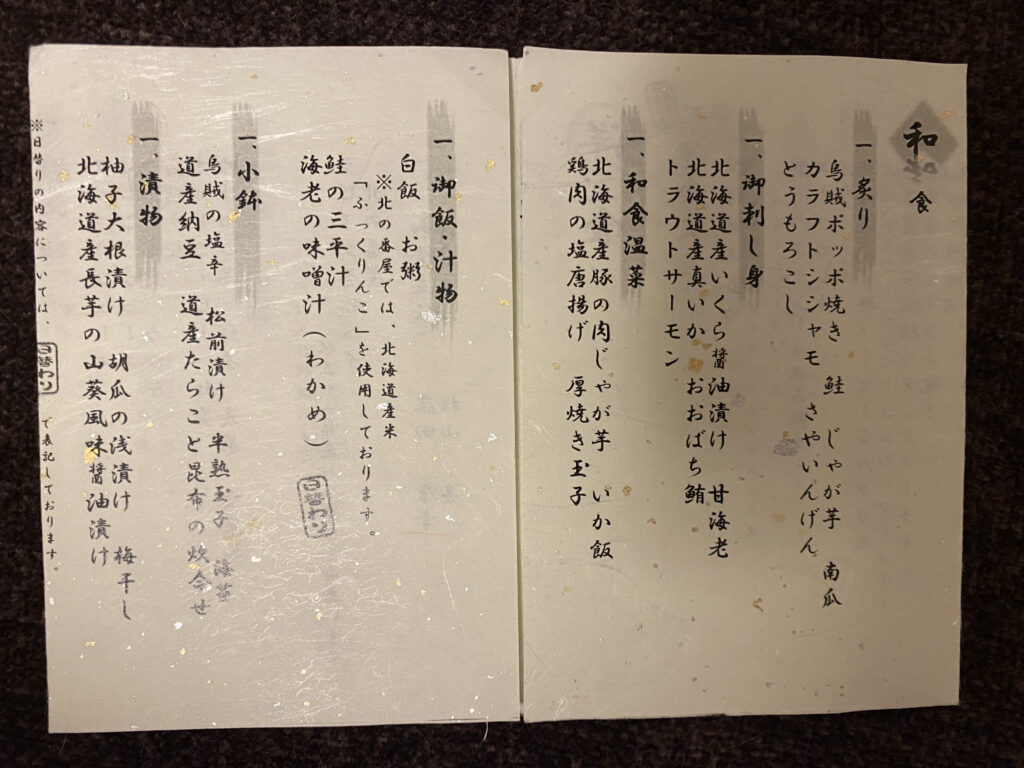 和食
一、炙り
烏賊ポッポ焼き 鮭 じゃが芋 南瓜
カラフトシシャモ さやいんげん
とうもろこし
一、御刺し身
北海道産いくら醤油漬け 甘海老
北海道産真いか おおばち鮪
トラウトサーモン
一、和食温菜
北海道産豚の肉じゃが芋 いか飯
鶏肉の塩唐揚げ 厚焼き玉子
一、御飯・汁物
白飯 お粥
※北の番屋では、北海道産米
「ふっくりんこ」を使用しております。
鮭の三平汁
海老の味噌汁(わかめ) 日替わり
一、小鉢
烏賊の塩辛 松前漬け 半熟玉子 海苔
道産納豆 道産たらこと昆布の炊合せ
一、漬物
柚子大根漬け 胡瓜の浅漬け 梅干し
北海道産長芋の山葵風味醤油漬け
※日替りの内容については、 日替わり で表記しております。